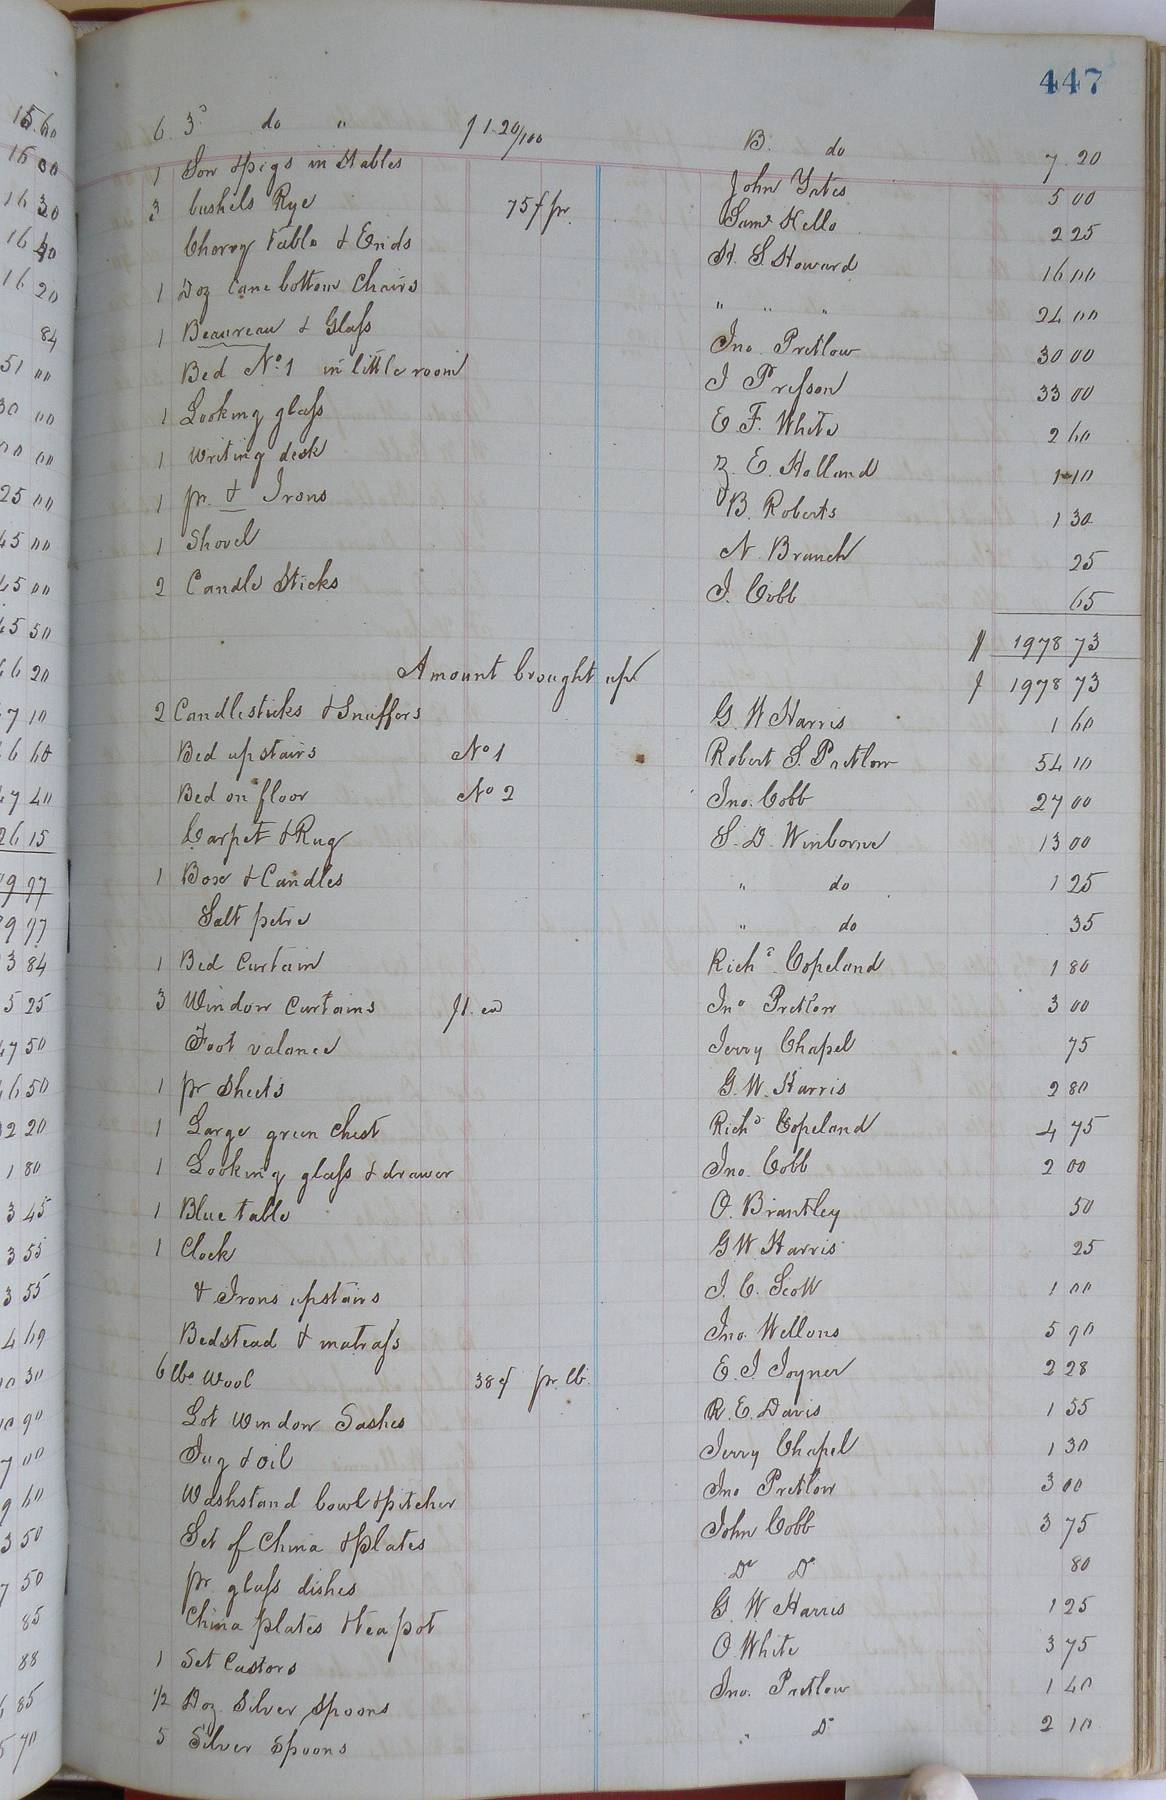 447
6 3d do " $1.20/100 B. do 7.20
1 Sow & pigs in Stables John Yates 5 00
3 bushels Rye 75 ¢ pr. Saml Kello 2 25
Cherry Table & Ends H. S. Howard 16 00
1 Doz Cane bottom Chairs " " " 24 00
1 Beaureau & Glass Jno. Pretlow 30 00
Bed No. 1 in little room J Presson 33 00
1 Looking glass E. F. White 2 60
1 Writing desk Z. E. Holland 1 10
1 pr. & Irons B. Roberts 1 30
1 Shovel N. Branch 25
2 Candle Sticks J. Cobb 65
$ 1978 73
Amount brought up $ 1978 73
2 Candlesticks & Snuffers G. W Harris 1 60
Bed upstairs No 1 Robert S. Pretlow 54 10
Bed on floor No 2 Jno. Cobb 27 00
Carpet & Rug S. D. Winborne 13 00
1 Box & Candles " do 1 25
Salt petre " do 35
1 Bed Curtain Richd. Copeland 1 80
3 Window Curtains $1. ea Jno Pretlow 3 00
Foot valance Jerry Chapel 75
1 pr Sheets G. W. Harris 2 80
1 Large green Chest Richd Copeland 4 75
1 Looking glass & drawer Jno. Cobb 2 00
1 Blue table O. Brantley 50
1 Clock G W Harris 25
& Irons upstairs J. C. Scott 1 00
Bedstead & matrass Jno. Wellons 5 90
6 lbs Wool 38 ¢ pr. lb. E. J. Joyner 2 28
Lot Window Sashes R. E. Davis 1 55
Jug & oil Jerry Chapel 1 30
Washstand bowl & pitcher Jno Pretlow 3 00
Set of China & plates John Cobb 3 75
pr glass dishes Do Do 80
China plates & tea pot G. W Harris 1 25
1 Set Castors O. White 3 75
1/2 Doz. Silver Spoons Jno. Pretlow 1 40
5 Silver Spoons " Do 2 10